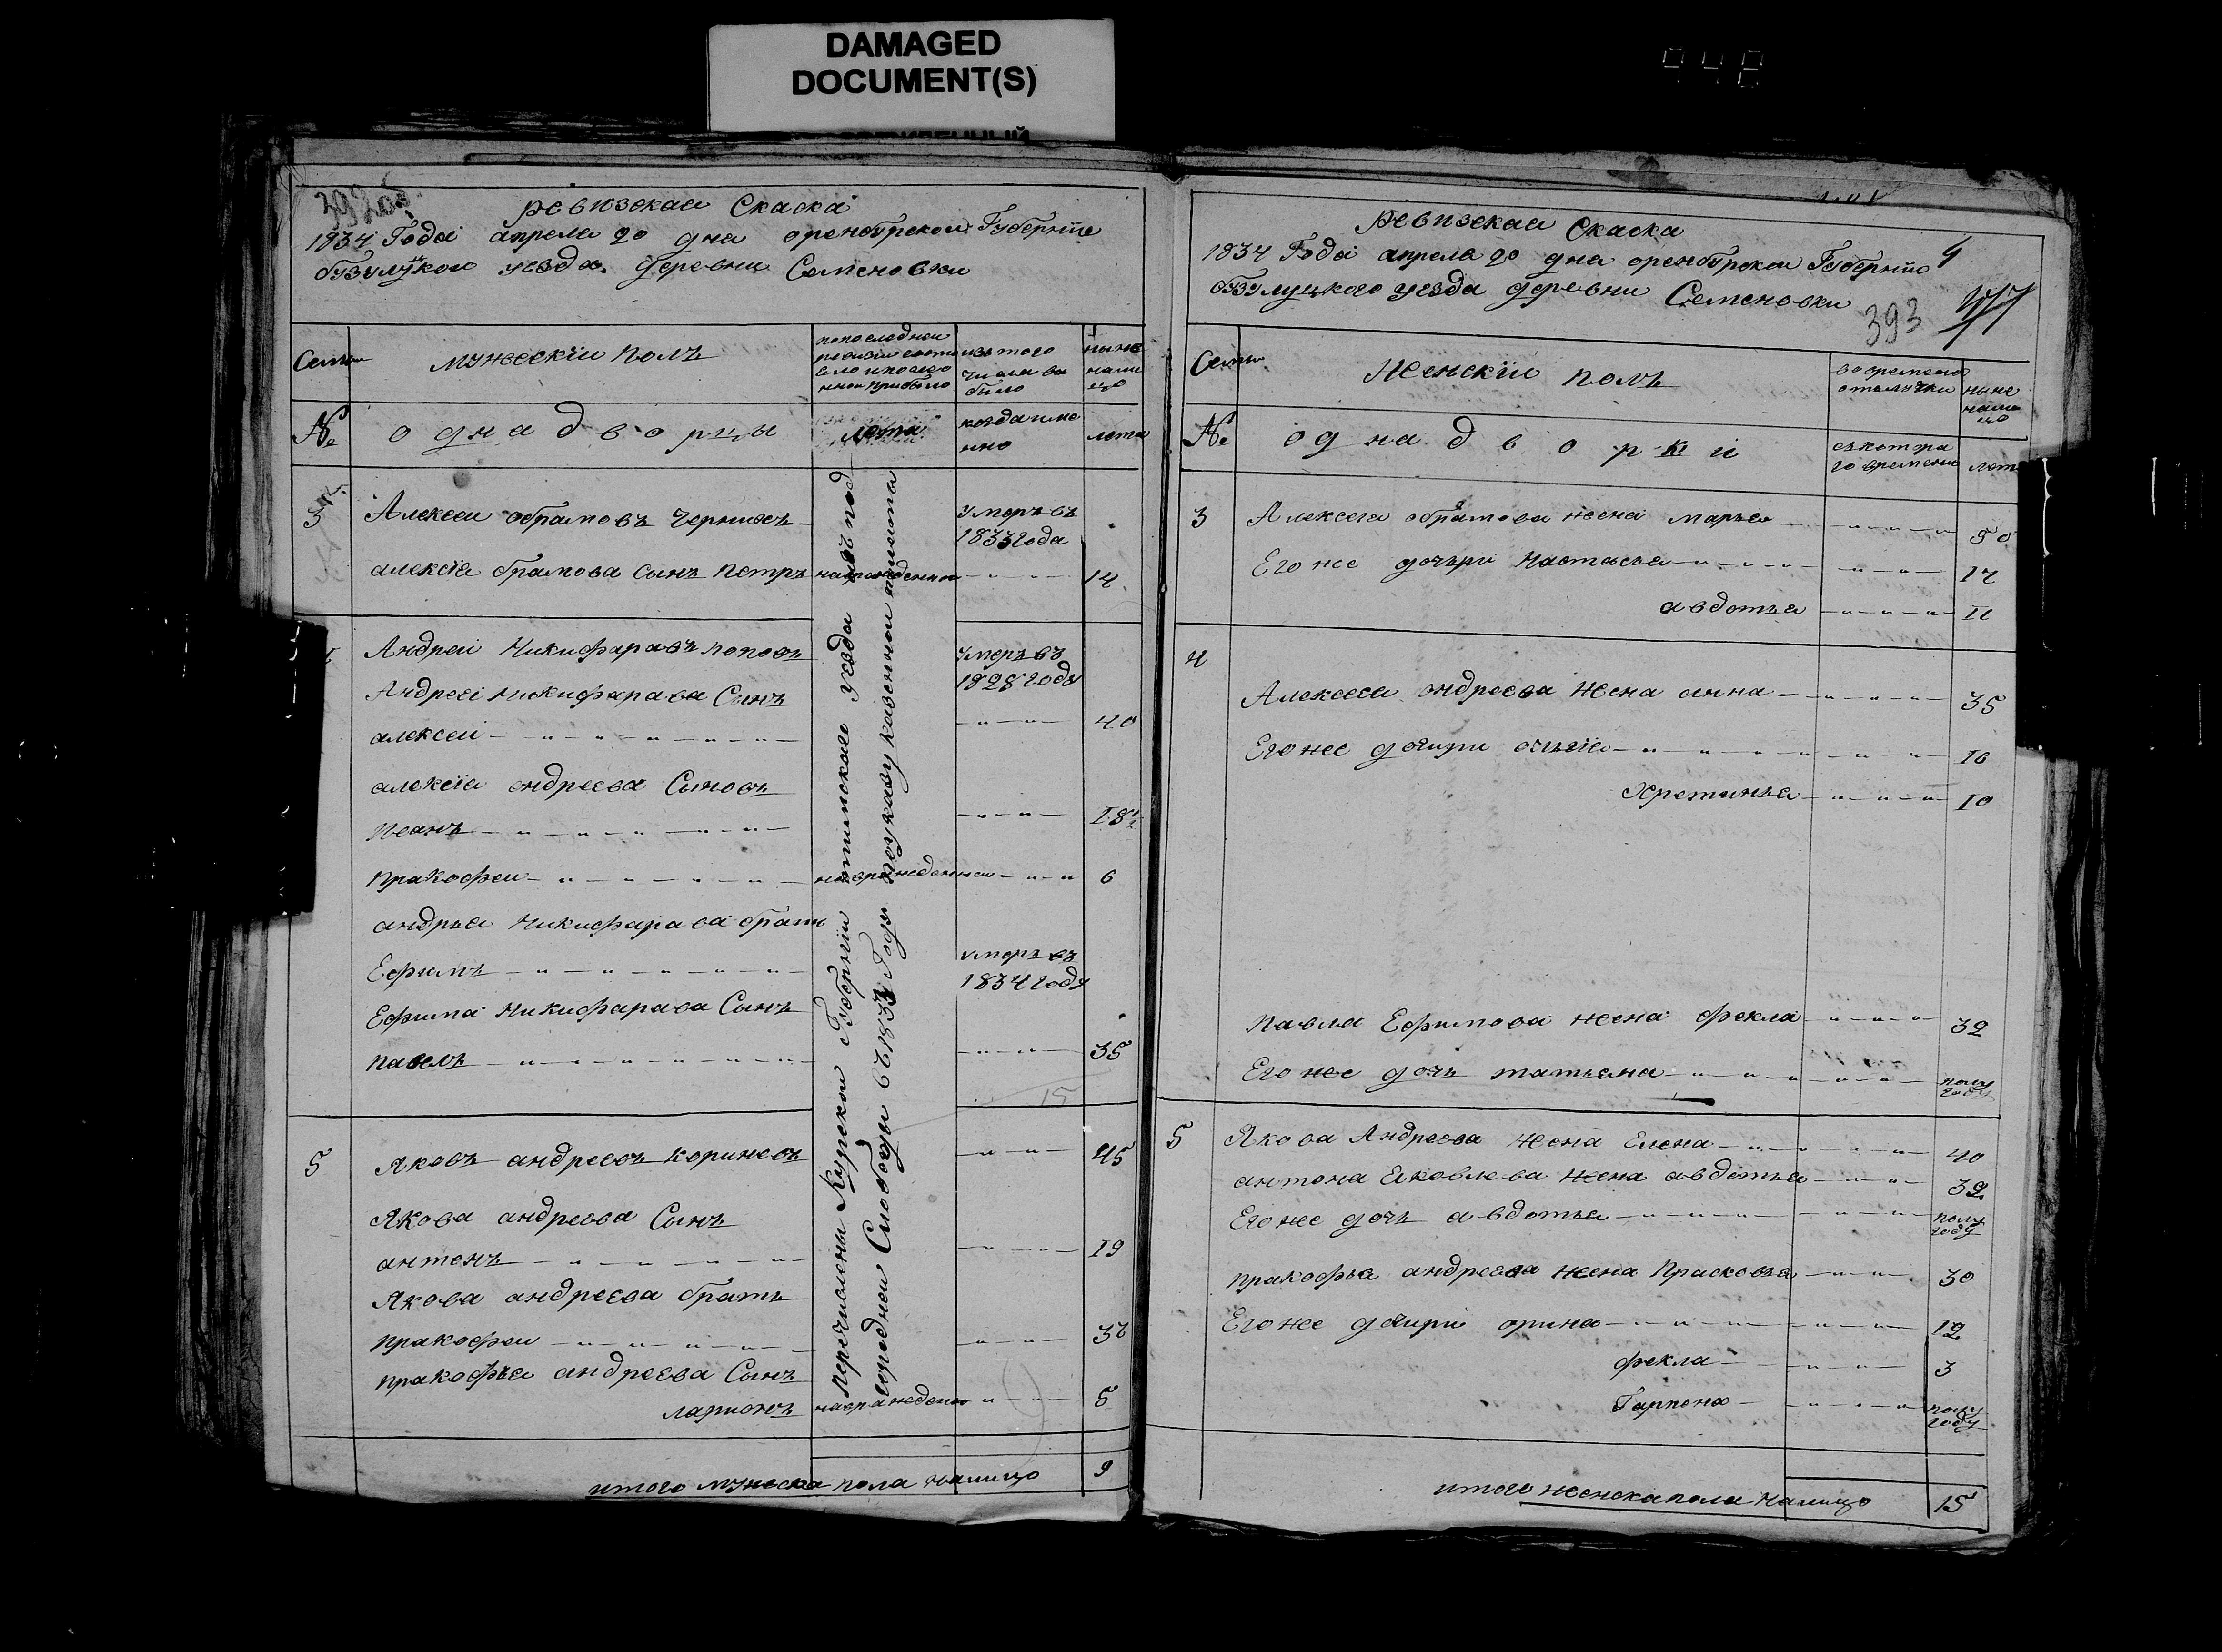 DAMAGED
DOCUMENT(S)
ревизская Скаска
1834 Года апреля 20 дня оренбурской Губернїи
бузулуцкого уезда деревни Семеновки
Семьи
мужескїи полъ
попоследнеи
ревизии состо
яло ипосле
оной прибыло
изътого
числа вы
было
ныне
нали
цо
№
однадворцы
лета
когда имя
нно
лета
3
Алексеи абрамовъ Черниковъ
умеръ въ
1833 года
алексѣя брамова Сынъ Петръ
новорожденнои
14
Андреи Никифаравъ поповъ
умеръ въ
1828 году
Андрея Никифарава Сынъ
алексеи
40
алексѣя андреева Сыновъ
Иванъ
18
Пракофеи
новорожденнои
6
андрѣя Никифарава братъ
Ефимъ
умеръ въ
1834 году
Ефима Никифарава Сынъ
павелъ
35
15
5
Яковъ андреевъ кариневъ
45
Якова андреева Сынъ
антонъ
19
Якова андреева братъ
пракофеи
37
пракофѣя андреева Сынъ
ларионъ
5
перечислены Курскои Губернїи тимскаго уезда
городнеи Слободы въ 1832 Году поуказу казеннои палаты
итого мужеска пола налицо
9
ревизская Скаска
1834 Года апреля 20 дня оренбурскои Губернїи
бузулуцкого уезда деревни Семеновки
393
Семьи
Женскїи полъ
во времянои
отлучки
ныне
нали
цо
№
однадворки
съ котора
го времени
лет
3
Алексея абрамова жена марья
50
Его же дочери настасья
17
авдотья
11
4
Алексея андреева жена анна
35
Его же дочири
16
Хрестинья
10
Павла Ефимова жена фекла
32
Его же дочь татьяна
полу
году
5
Якова Андреева жена Елена
40
антона Яковлева жена авдотья
32
Его же дочь авдотья
полу
году
пракофья андреева жена Прасковья
30
Его же дочири орина
12
фекла
3
Гарпена
полу
году
итого женска пола налицо
15